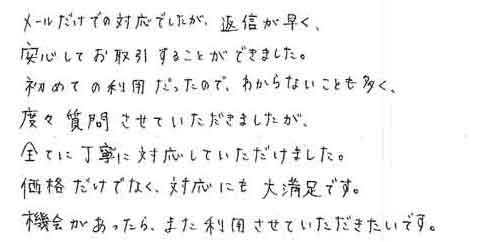 メールだけでの対応でしたが、返信が早く、
安心してお取引することができました。
初めての利用だったので、わからないことも多く、
度々質問させていただきましたが、
全てに丁寧に対応していただけました。
価格だけでなく、対応にも大満足です。
機会があったら、また利用させていただきたいです。